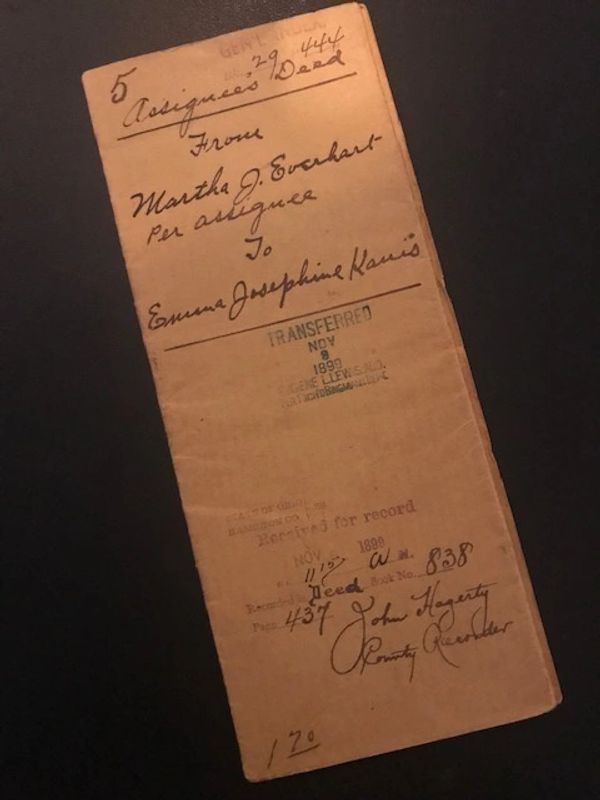 GEN'L INDEX
5
29 444
Assignee's Deed
From
Martha J. Everhart
Per assignee
To
Emma Josephine Kanis
TRANSFERRED
NOV
8
1899
EUGENE L. LEWIS, AUD.
STATE OF OHIO
HAMILTON CO.
Received for record
NOV 1899
1115 A M.
Recorded in Deed Book No. 838
Page 437 John Hagerty
County Recorder
1 70